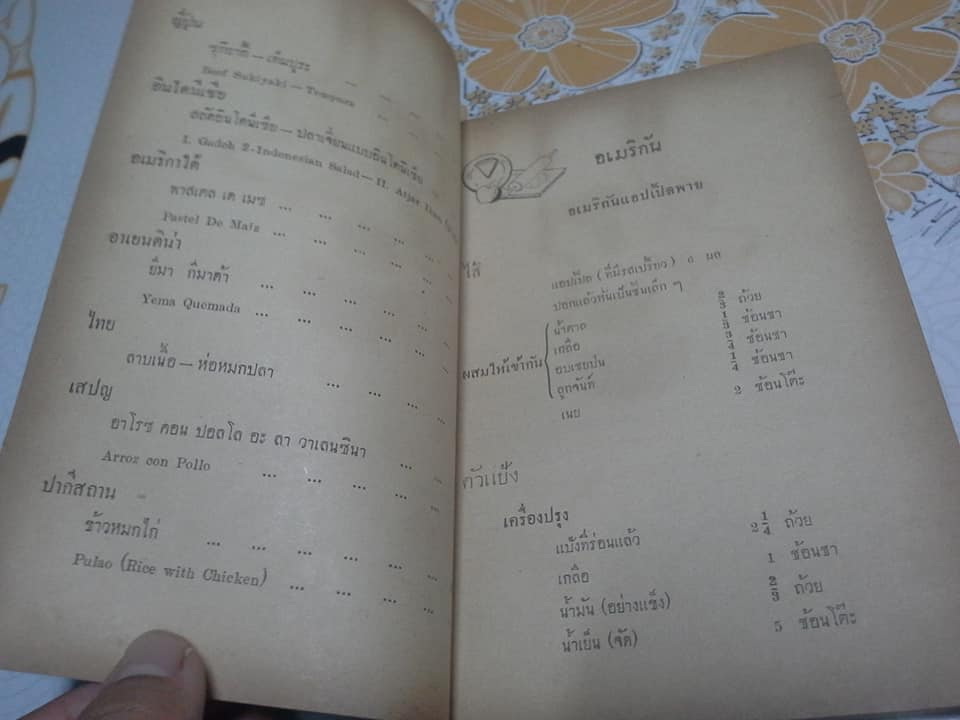 ญี่ปุ่น
ซุกิยากี้ — เท็มปูระ
Beef Sukiyaki — Tempura
อินโดนีเซีย
สลัดอินโดนีเซีย — ปลาเจี๋ยนแบบอินโดนีเซีย
I. Gadoh 2-Indonesian Salad — II. Atjar Ikan
อเมริกาใต้
พาสเตล เด เมซ ... ... ...
Pastel De Maiz ... ... ... ...
อาเยนตินา
ยีมา กีมาด้า ... ... ... ...
Yema Quemada ... ... ... ... ...
ไทย
ลาบเนื้อ — ห่อหมกปลา ... ... ...
เสปญ
อาโรซ คอน ปอลโล อะ ลา วาเลนซินา ... ...
Arroz con Pollo ... ... ... ... ...
ปากีสถาน
ข้าวหมกไก่ ... ... ... ... ... ...
Pulao (Rice with Chicken) ... ... ... ...
อเมริกัน
อเมริกันแอปเปิลพาย
ไส้
แอปเปิล (ที่มีรสเปรี้ยว) ๘ ผล
ปอกแล้วหั่นเป็นชิ้นเล็ก ๆ
ผสมให้เข้ากัน
น้ำตาล 2/3 ถ้วย
เกลือ 1/3 ช้อนชา
อบเชยป่น 3/4 ช้อนชา
ลูกจันท์ 1/4 ช้อนชา
เนย 2 ช้อนโต๊ะ
ตัวแป้ง
เครื่องปรุง
แป้งที่ร่อนแล้ว 2 1/4 ถ้วย
เกลือ 1 ช้อนชา
น้ำมัน (อย่างแข็ง) 2/3 ถ้วย
น้ำเย็น (จัด) 5 ช้อนโต๊ะ